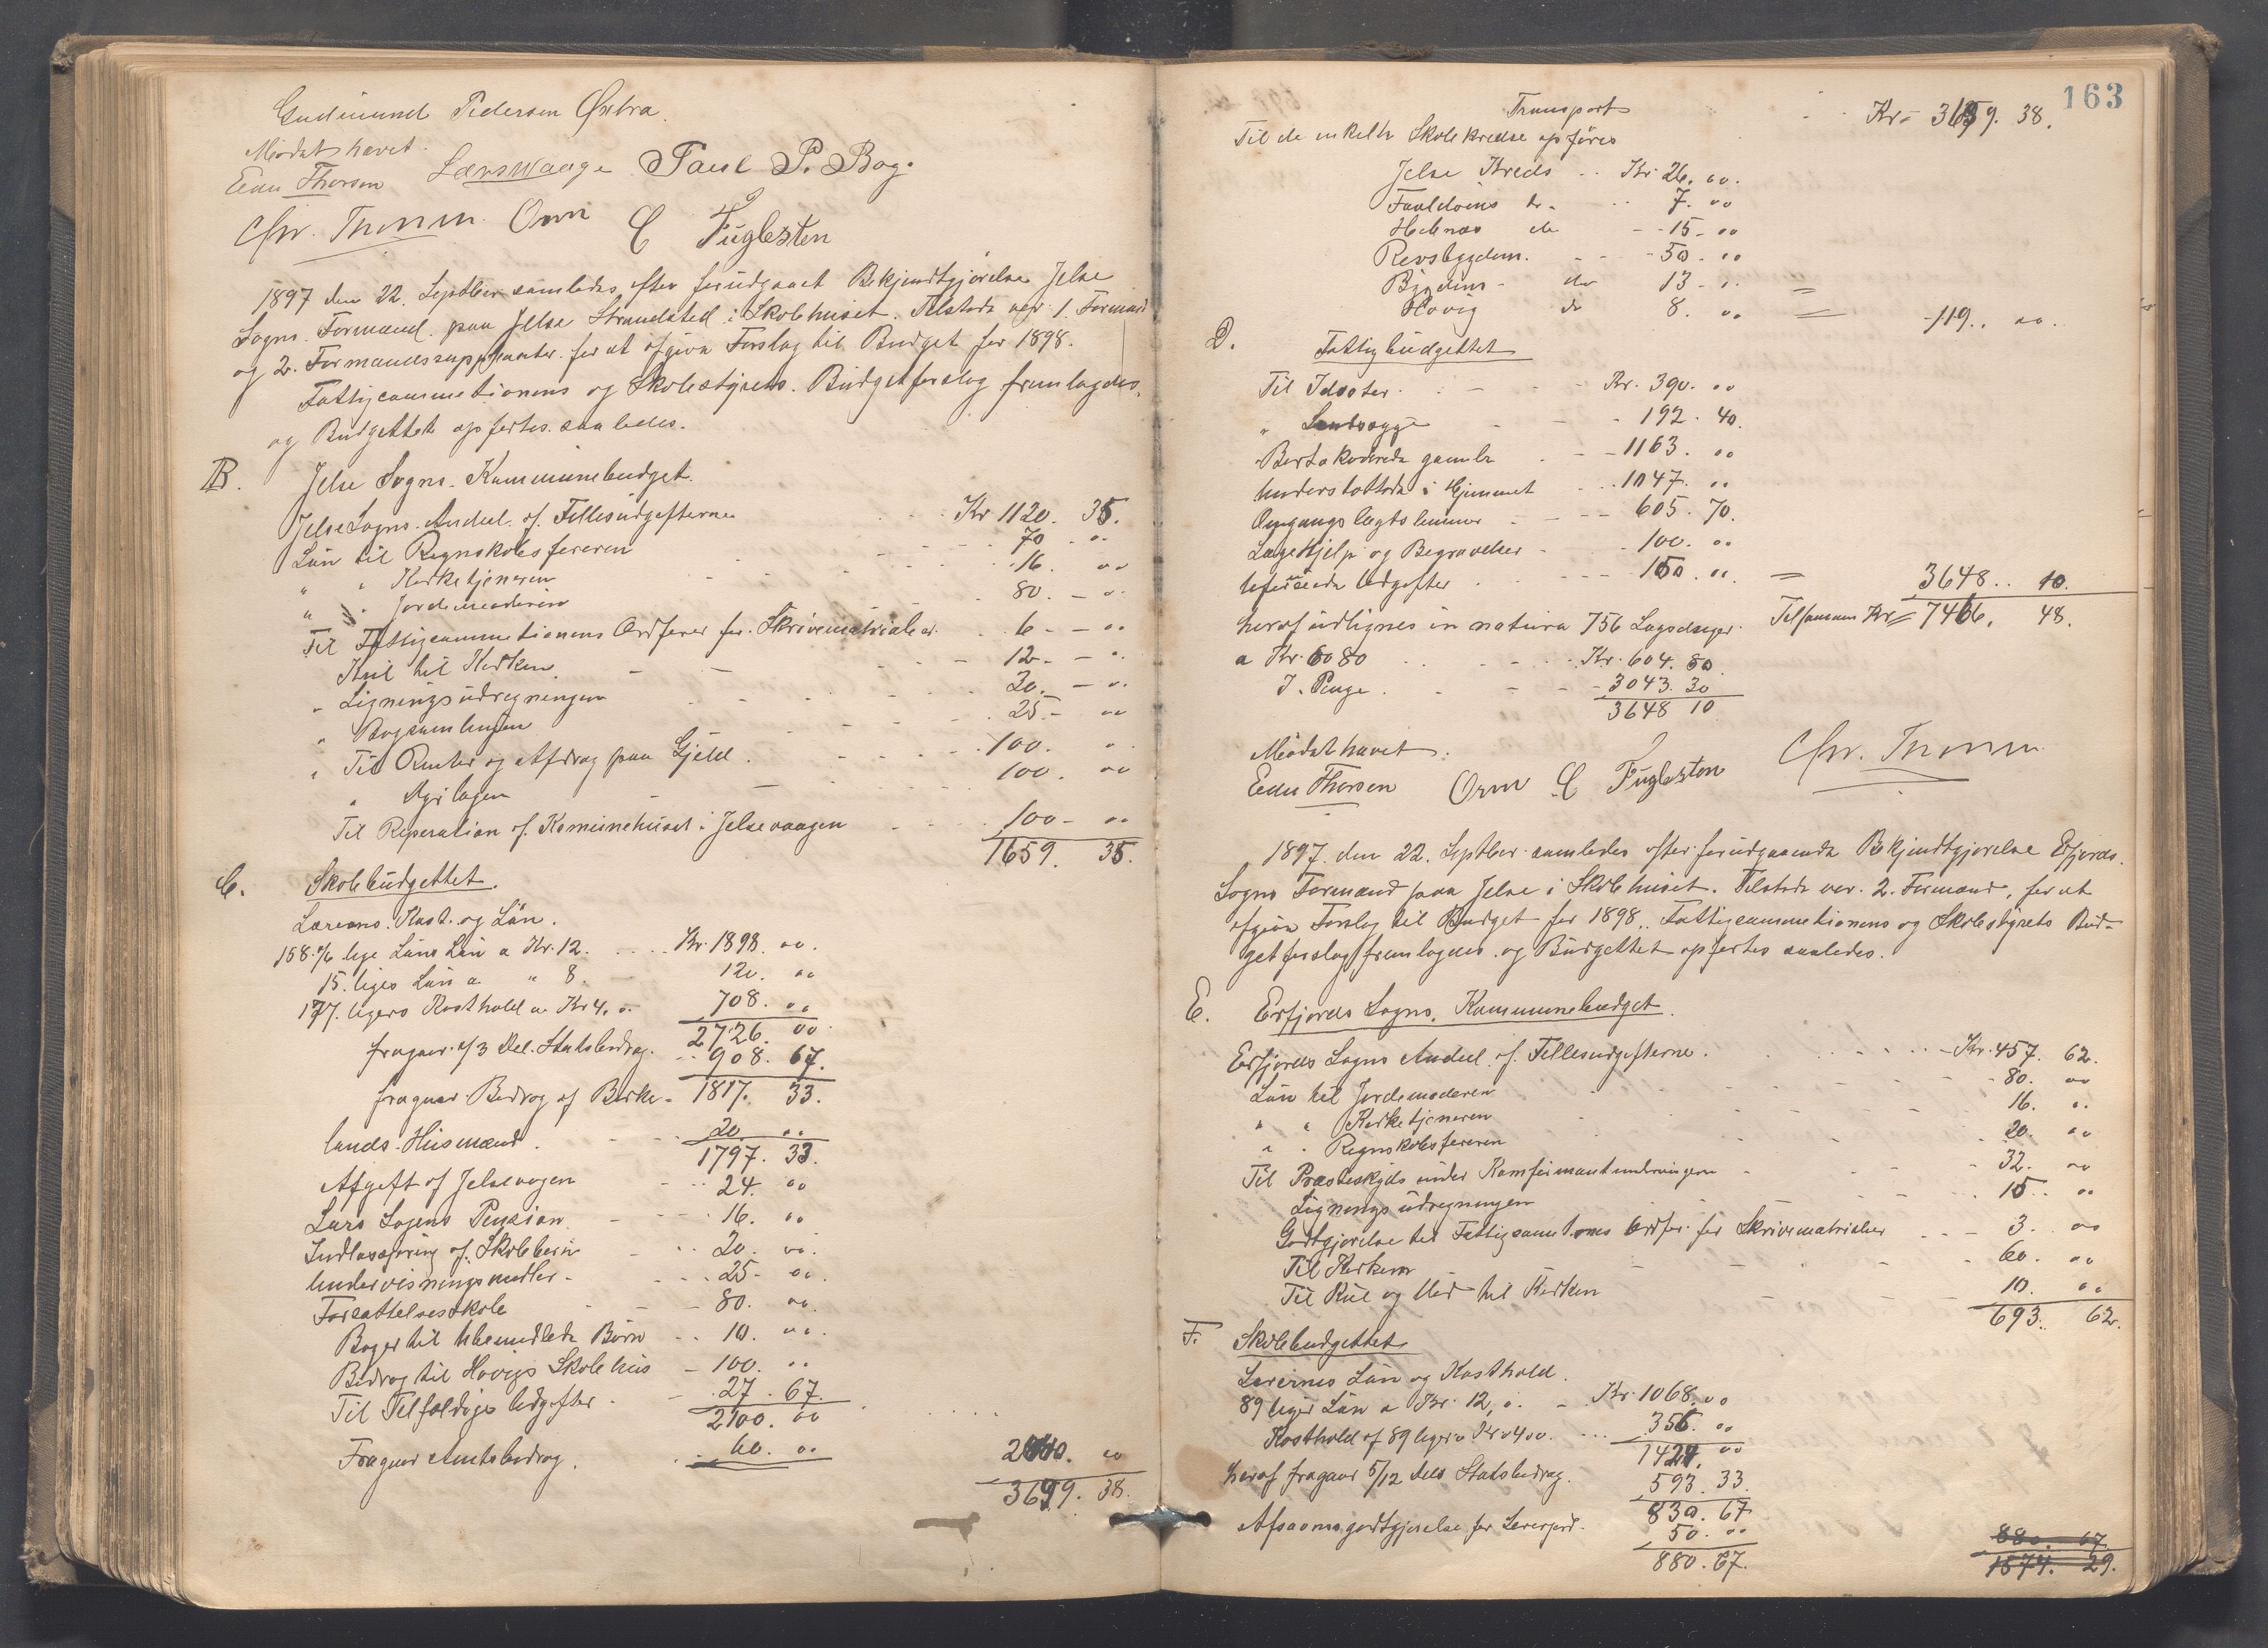 Gudmund Pedersen Østbø.
Mødet hævet.
Edw Thorsen Lars Waage Paul P. Bog.
Chr. Thorsen Orm C Fuglesten
1897 den 22. Septber samledes efter forudgaaet Bekjendtgjørelse Jelse
Sogns Formænd paa Jelse Strandsted i Skolehuset. Tilstede var 1. Formand
og 2. Formandssuppleanter for at afgive Forslag til Budget for 1898.
Fattigcommetionens og Skolestyrets Budgetforslag fremlagdes,
og Budgettet opførtes saaledes.
B. Jelse Sogns Kommunebudget.
Jelse Sogns Andeel af Fællesudgifterne Kr 1120. 35.
Løn til Regnskabsføreren 70 - "
" " Kirketjeneren 16. "
" " Jordemoderen 80. - "
Til Fattigcommetionens Ordfører for Skrivematrialier 6 - "
Kul til Kirken 12 - "
" Ligningsudregningen 20. - "
" Bogsamlingen 25 - "
" Til Renter og Afdrag paa Gjeld 100. "
" Dyrlægen 100. "
Til Reperation af Komunehuset i Jelsevaagen 100 - "
1659. 35.
C. Skolebudgettet.
Lærerns Kost og Løn.
158 1/6 Uge Løns Løn a Kr. 12. Kr. 1898. 00.
15. Uges Løn a " 8. 120. 00
177. Ugers Kosthold a Kr 4, 0. 708. 00
2726. 00.
fragaar 1/3 Del Statsbidrag. 908. 67.
1817. 33.
fragaar Bidrag af Birke-
lands Husmænd. 20 00
1797. 33.
Afgift af Jelsevagen 24. 00
Lars Lagens Pension 16. 00
Indlosjering af Skolebørn 20. 00.
Undervisningsmidler - 25 - 00.
Forsættelsesskole 80. 00.
Bøger til Ubemidlede Børn 10. 00.
Bidrag til Hovigs Skolehus 100. 00
Til Tilfældige Udgifter 27. 67.
2100. 00
Fragaar Amtsbidrag. 60. 00 00
38.
163
Transport Kr. 38.
Til de enkelte Skolekredse opføres
Jelse Kreds Kr 26. 00.
do. 7. 00
do 15 - 00
Revsbygdens. 50. 00
do 13 - "
Hovig do 8. 00 = 119. 00.
D. Fattigbudgettet
Til Idioter Kr. 390. 00
" 192. 40.
Bortakorderede gamle 1163. 00
Understøttede i Hjemmet 1047. 00
Omgangslægtslemmer 605. 70.
Lægehjelp og Begravelser 100. 00
Uforudseede Udgifter 150. 00. = 3648. 10.
heraf udlignes in natura 756 Lægsdager Tilsammen Kr = 7466. 48.
a Kr. 0 80 Kr. 604. 80
I. Penge 3043. 30
3648 10
Mødet hævet.
Edw Thorsen Orm C Fuglesten Chr. Thorsen
1897. den 22. Septber samledes efter forudgaaende Bekjendtgjørelse Erfjords
Sogns Formænd paa Jelse i Skolehuset. Tilstede var 2. Formænd, for at
afgive Forslag til Budget for 1898. Fattigcommetionens og Skolestyrets Bud-
getforslag fremlagdes og Budgettet opførtes saaledes.
E. Erfjords Sogns. Kommunebudget.
Erfjords Sogns Andeel af Fællesudgifterne. Kr. 457. 62.
Løn til Jordemoderen 80. 00
" " Kirketjeneren 16. "
" " Regnskabsføreren 20. 00
Til Præsteskyds under Komfirmantundervisningen 32. 00
Ligningsudregningen 15. 00
Godtgjørelse til Fattigcommetions Ordfør. for Skrivematrialier 3. 00
Til Kirken 60. 00
Til Kul og Ved til Kirken 10. 00
693. 62.
F. Skolebudgettet
Lærernes Løn og Kosthold.
89 Uger Løn a Kr. 12, 0. Kr. 1068. 00
Kosthold af 89 Uger a Kr 4 00. 356. 00
1424. 00
heraf fragaar 5/12 dels Statsbidrag. 593. 33.
830. 67
Afsavnsgodtgjørelse for Lærerjord. 50. 00
880. 67. 880. 67.
1574. 29.